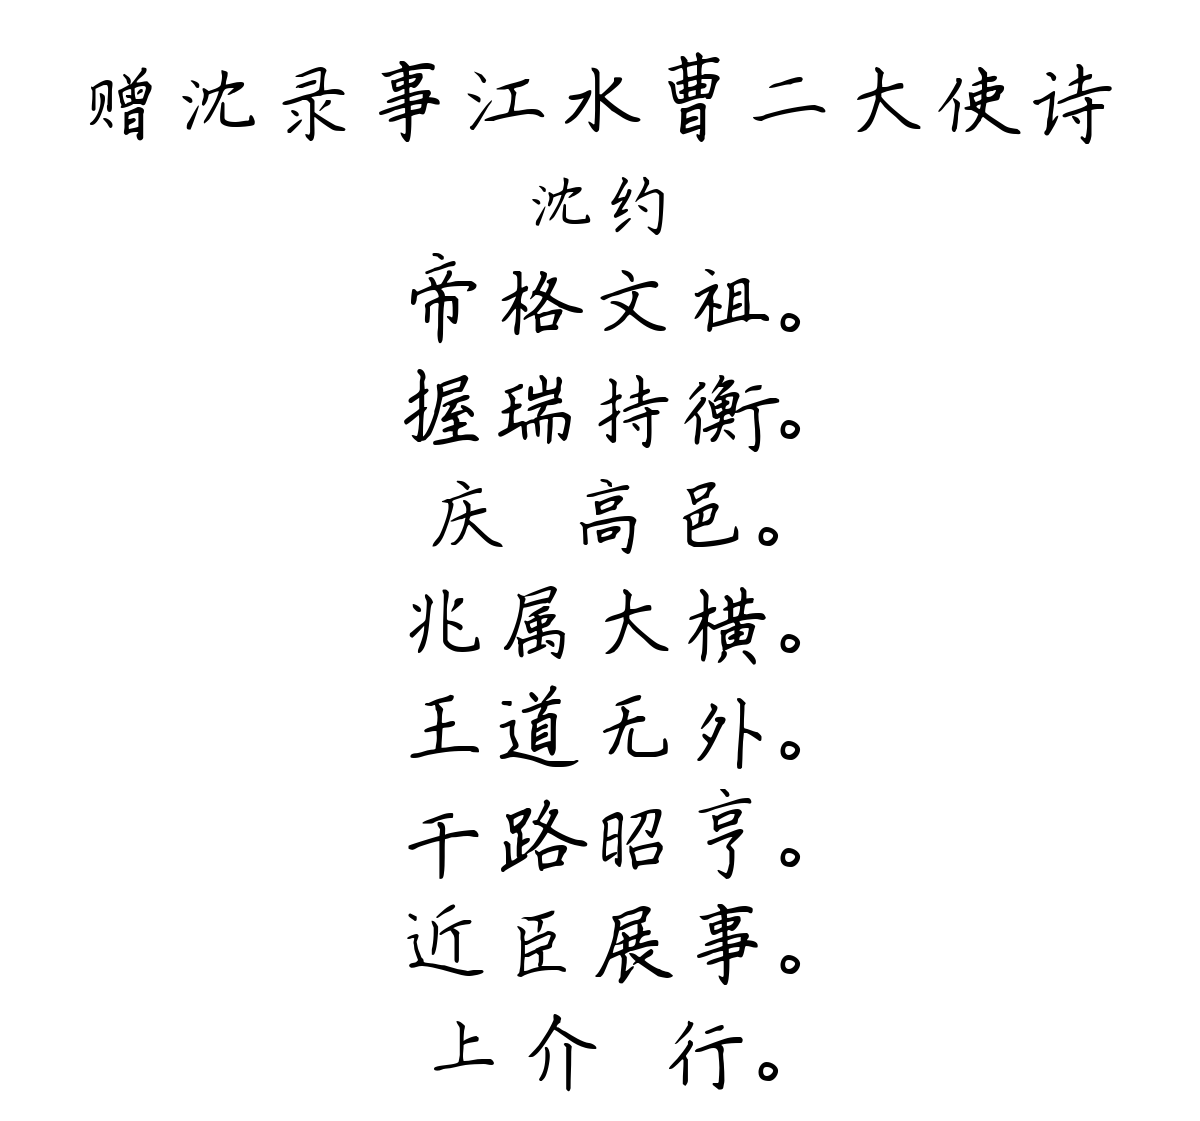 赠沈录事江水曹二大使诗
沈约
帝格文祖。
握瑞持衡。
庆 高邑。
兆属大横。
王道无外。
干路昭亨。
近臣展事。
上介 行。